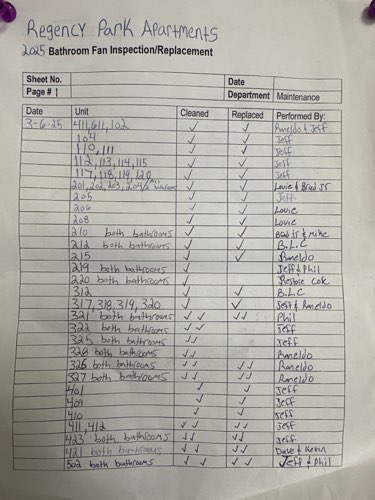 Regency Park Apartments
2025 Bathroom Fan Inspection/Replacement
Sheet No. Date
Page # 1 Department Maintenance
Date Unit Cleaned Replaced Performed By:
3-6-25 411, 611, 102 ✓ ✓ Raneldo & Jeff
104 ✓ ✓ Jeff
110, 111 ✓ ✓ Jeff
112, 113, 114, 115 ✓ ✓ Jeff
117, 118, 119, 120 ✓ ✓ Jeff
201, 202, 203, 204 ✓ ✓ Louie & Brad Jr
205 ✓ ✓ Jeff
206 ✓ ✓ Louie
208 ✓ ✓ Louie
210 both bathrooms ✓ ✓ Brad Jr & Mike
212 both bathrooms ✓ ✓ B.L.C
215 ✓ ✓ Raneldo
219 both bathrooms ✓ Jeff & Phil
220 both bathrooms ✓
312 ✓ ✓ B.L.C
317, 318, 319, 320 ✓ ✓ Jeff & Raneldo
321 both bathrooms ✓ ✓ ✓✓ Phil
322 both bathrooms ✓ ✓ Jeff
325 both bathrooms ✓✓ Jeff
328 both bathrooms ✓✓ Raneldo
326 both bathrooms ✓✓ ✓✓ Raneldo
327 both bathrooms ✓✓ ✓✓ Raneldo
401 ✓ ✓ Jeff
409 ✓ ✓ Jeff
410 ✓ ✓ Jeff
411, 412 ✓✓ ✓✓ Jeff
423 both bathrooms ✓✓ ✓✓ Jeff
421 both bathrooms ✓✓ ✓✓ Dave & Kevin
502 both bathrooms ✓ ✓ ✓✓ Jeff & Phil